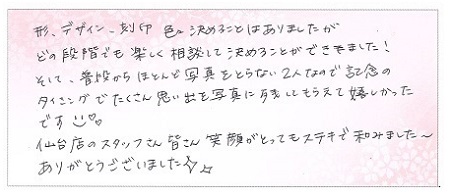 形、デザイン、刻印 色々決めることはありましたが
どの段階でも楽しく相談して決めることができました!
そして、普段からほとんど写真をとらない2人なので記念の
タイミングでたくさん思い出を写真に残してもらえて嬉しかった
です
仙台店のスタッフさん皆さん 笑顔がとってもステキで和みました〜
ありがとうございました